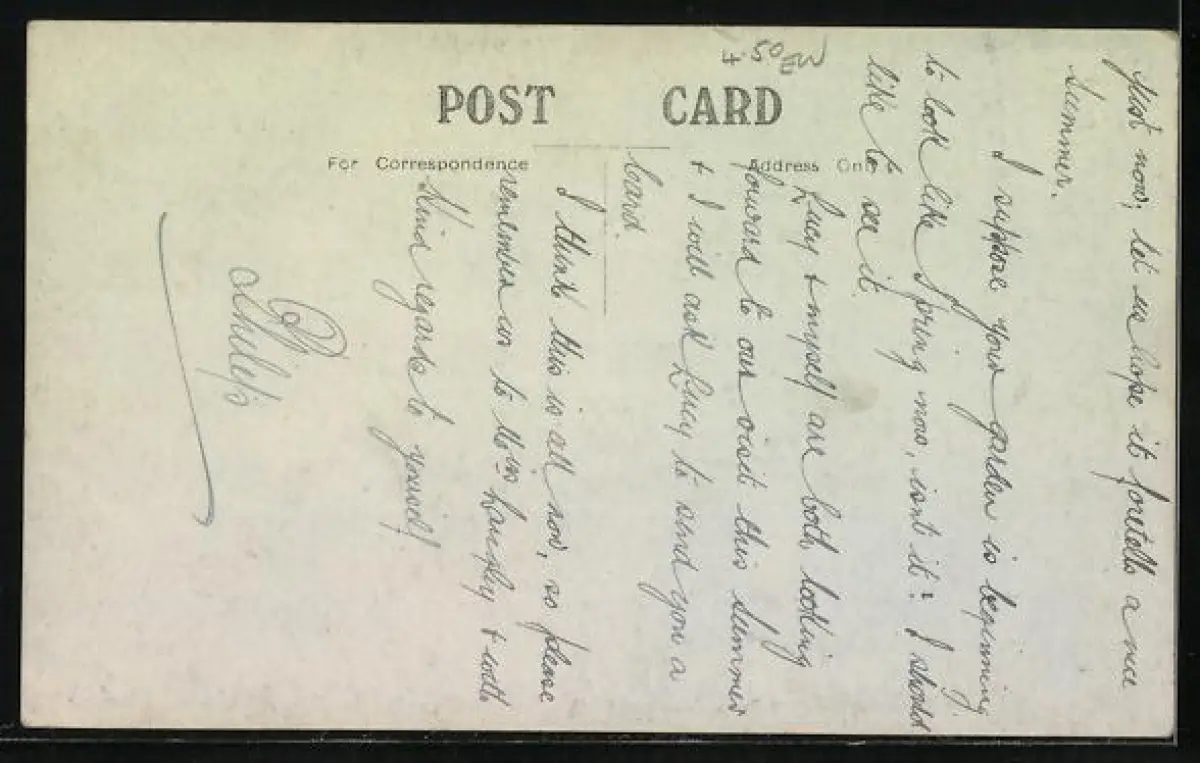 POST CARD
For Correspondence
Address Only
just now, let us hope it foretells a nice
Summer.
I suppose your garden is beginning
to look like Spring now, isnt it? I should
like to see it.
Lucy & myself are both looking
forward to our visit this Summer
& I will ask Lucy to send you a
card.
I think this is all now, so please
remember us to Mrs & with
Kind regards to yourself